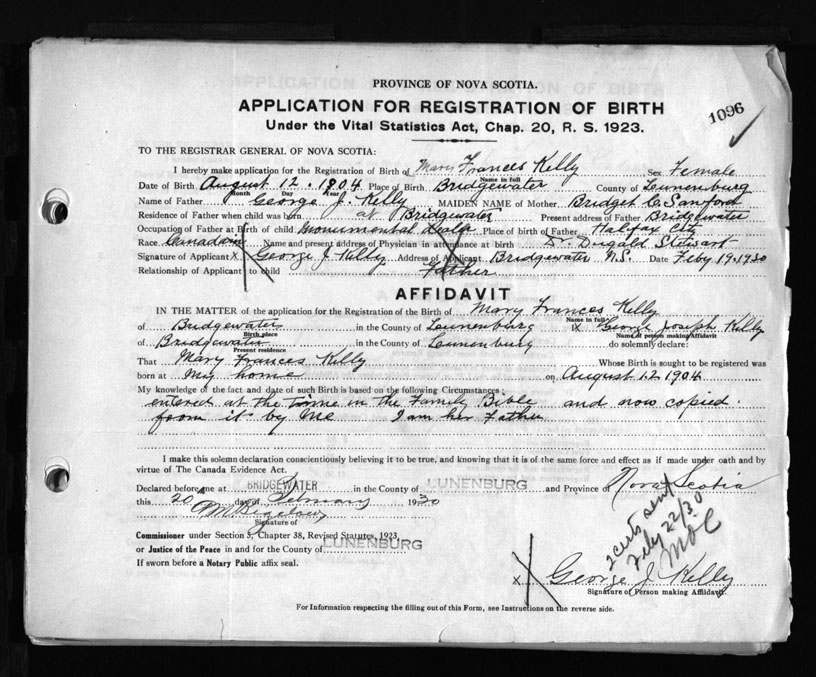 PROVINCE OF NOVA SCOTIA.
APPLICATION FOR REGISTRATION OF BIRTH
1096
Under the Vital Statistics Act, Chap. 20, R. S. 1923.
TO THE REGISTRAR GENERAL OF NOVA SCOTIA:
I hereby make application for the Registration of Birth of Mary Frances Kelly Sex Female
Name in full
Date of Birth August 12. 1904 Place of Birth Bridgewater County of Lunenburg
Month Day Year
Name of Father George J. Kelly MAIDEN NAME of Mother Bridget C. Sanford
Residence of Father when child was born at Bridgewater Present address of Father Bridgewater
Occupation of Father at Birth of child Monumental dealer Place of birth of Father Halifax City
Race Canadian Name and present address of Physician in attendance at birth Dr. Dugald Stewart
Signature of Applicant X George J. Kelly Address of Applicant Bridgewater N.S. Date Feby 19. 1930
Relationship of Applicant to child Father
AFFIDAVIT
IN THE MATTER of the application for the Registration of the Birth of Mary Frances Kelly
Name in full
of Bridgewater in the County of Lunenburg I X George Joseph Kelly
Birth place Name of person making Affidavit
of Bridgewater in the County of Lunenburg do solemnly declare:
Present residence
That Mary Frances Kelly Whose Birth is sought to be registered was
born at My home on August 12 1904
My knowledge of the fact and date of such Birth is based on the following Circumstances:
entered at the time in the Family Bible and now copied.
from it by Me I am her Father
I make this solemn declaration conscientiously believing it to be true, and knowing that it is of the same force and effect as if made under oath and by
virtue of The Canada Evidence Act.
Declared before me at BRIDGEWATER in the County of LUNENBURG and Province of Nova Scotia
this 20 day of February 1930
Signature of
2 certs sent
Feby 22/30
Commissioner under Section 5, Chapter 38, Revised Statutes, 1923,
or Justice of the Peace in and for the County of LUNENBURG
If sworn before a Notary Public affix seal.
X George J. Kelly
Signature of Person making Affidavit.
For Information respecting the filling out of this Form, see Instructions on the reverse side.